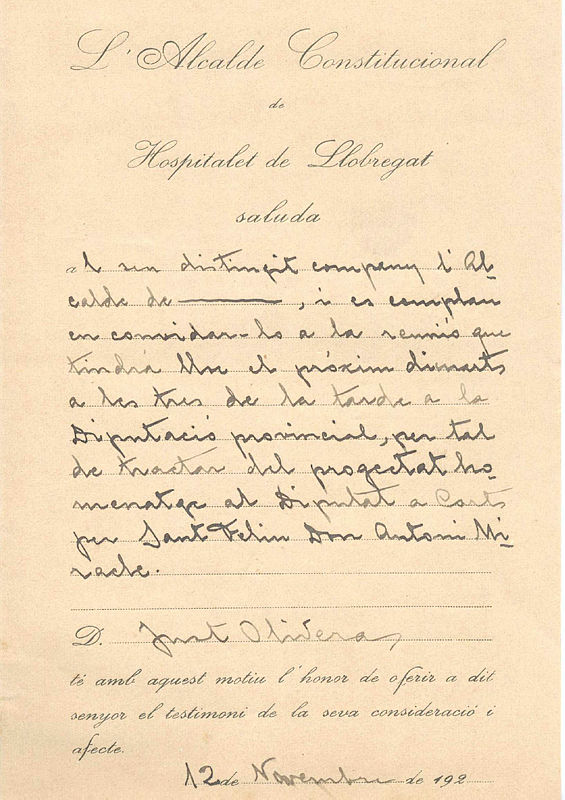 L'Alcalde Constitucional
de
Hospitalet de Llobregat
saluda
al seu distingit company l'Al-
calde de ———, i es complau
en convidar-lo a la reunió que
tindrà lloc el próxim dimarts
a les tres de la tarde a la
Diputació provincial, per tal
de tractar del progectat ho-
menatge al Diputat a Corts
per Sant Feliu Don Antoni Mi-
racle.
D. Just Olivera,
té amb aquest motiu l'honor de oferir a dit
senyor el testimoni de la seva consideració i
afecte.
12 de Novembre de 192